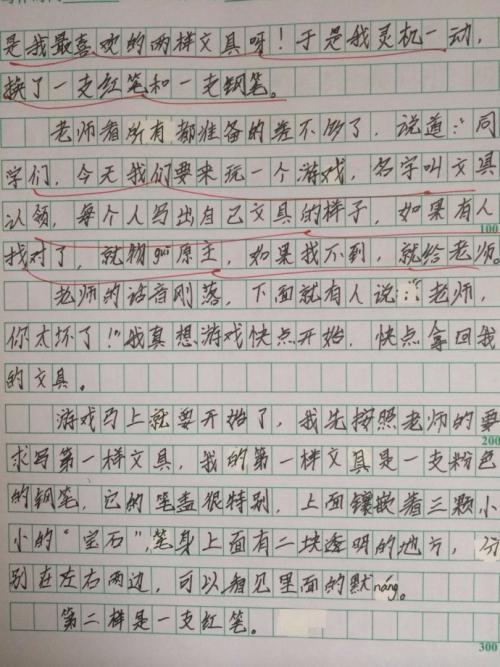 是我最喜欢的两样文具呀！于是我灵机一动，
换了一支红笔和一支钢笔。
老师看所有都准备的差不多了，说道：“同
学们，今天我们要来玩一个游戏，名字叫文具
认领，每个人写出自己文具的样子，如果有人
100
找对了，就物guī原主，如果找不到，就给老师。
老师的话音刚落，下面就有人说：“老师，
你太坏了！”我真想游戏快点开始，快点拿回我
的文具。
游戏马上就要开始了，我先按照老师的要
200
求写第一样文具，我的第一样文具是一支粉色
的钢笔，它的笔盖很特别，上面镶嵌着三颗小
小的“宝石”，笔身上面有二块透明的地方，分
别在左右两边，可以看见里面的默náng。
第二样是一支红笔。
300